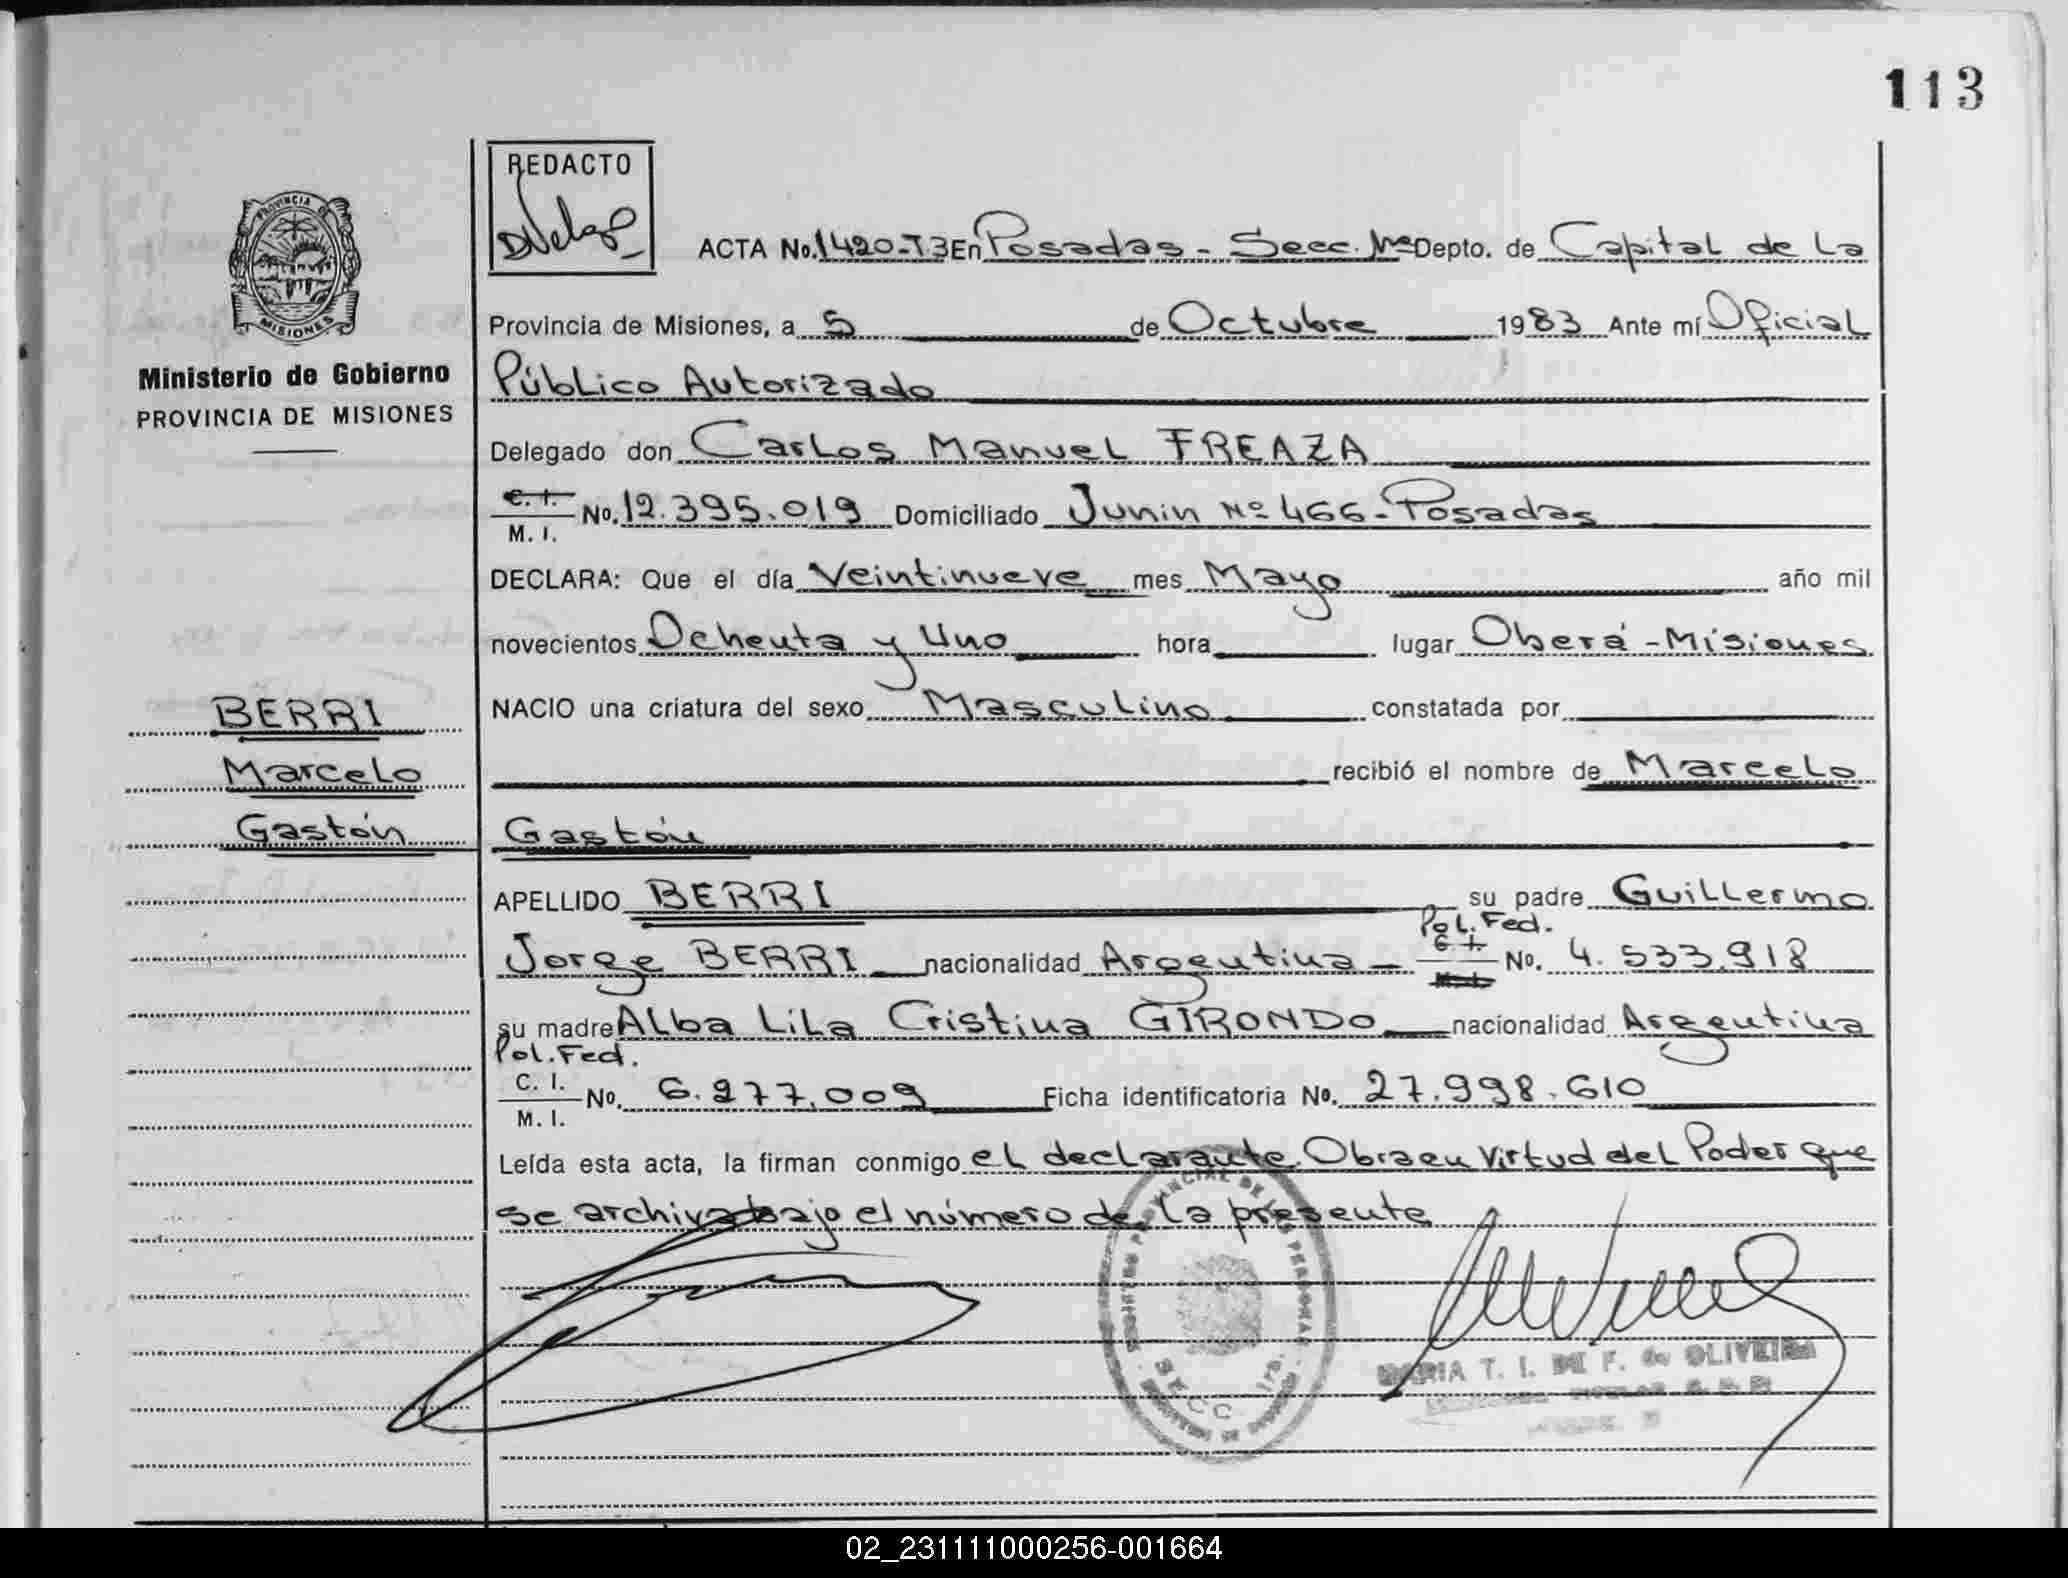 113
REDACTO
PROVINCIA DE
MISIONES
ACTA No. 1420-T3 En Posadas - Secc. 1ra Depto. de Capital de la
Ministerio de Gobierno
PROVINCIA DE MISIONES
Provincia de Misiones, a 5 de Octubre 1983 Ante mí Oficial
Público Autorizado
Delegado don Carlos Manuel FREAZA
C. I.
M. I. No. 12.395.019 Domiciliado Junin Nº 466-Posadas
DECLARA: Que el día Veintinueve mes Mayo año mil
novecientos Ochenta y Uno hora lugar Oberá-Misiones
NACIO una criatura del sexo Masculino constatada por
recibió el nombre de Marcelo
Gastón
BERRI
Marcelo
Gastón
APELLIDO BERRI su padre Guillermo
Pol. Fed.
Jorge BERRI nacionalidad Argentina - C. I. M. I. No. 4.533.918
su madre Alba Lila Cristina GIRONDO nacionalidad Argentina
Pol. Fed.
C. I.
M. I. No. 6.277.009 Ficha identificatoria No. 27.998.610
Leída esta acta, la firman conmigo el declarante. Obra en Virtud del Poder que
se archiva bajo el número de la presente
REGISTRO PROVINCIAL DE LAS PERSONAS
SECC. 1ra.
MARIA T. I. DE F. de OLIVEIRA
02_231111000256-001664